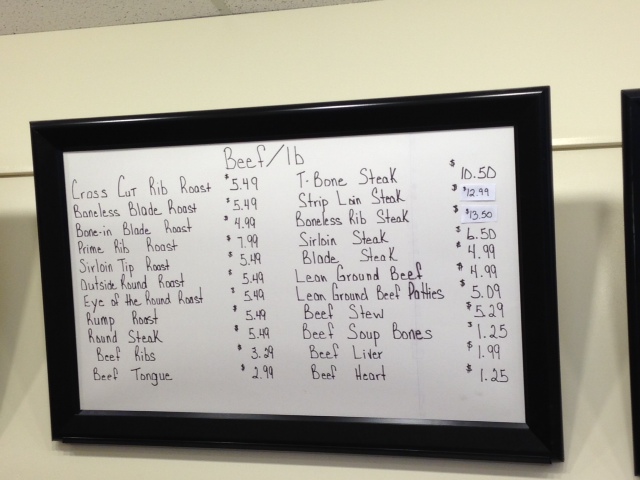 Beef/lb
Cross Cut Rib Roast $5.49
Boneless Blade Roast $5.49
Bone-in Blade Roast $4.99
Prime Rib Roast $7.99
Sirloin Tip Roast $5.49
Outside Round Roast $5.49
Eye of the Round Roast $5.49
Rump Roast $5.49
Round Steak $5.49
Beef Ribs $3.29
Beef Tongue $2.99
T-Bone Steak $10.50
Strip Loin Steak $12.99
Boneless Rib Steak $13.50
Sirloin Steak $6.50
Blade Steak $4.99
Lean Ground Beef $4.99
Lean Ground Beef Patties $5.09
Beef Stew $5.29
Beef Soup Bones $1.25
Beef Liver $1.99
Beef Heart $1.25